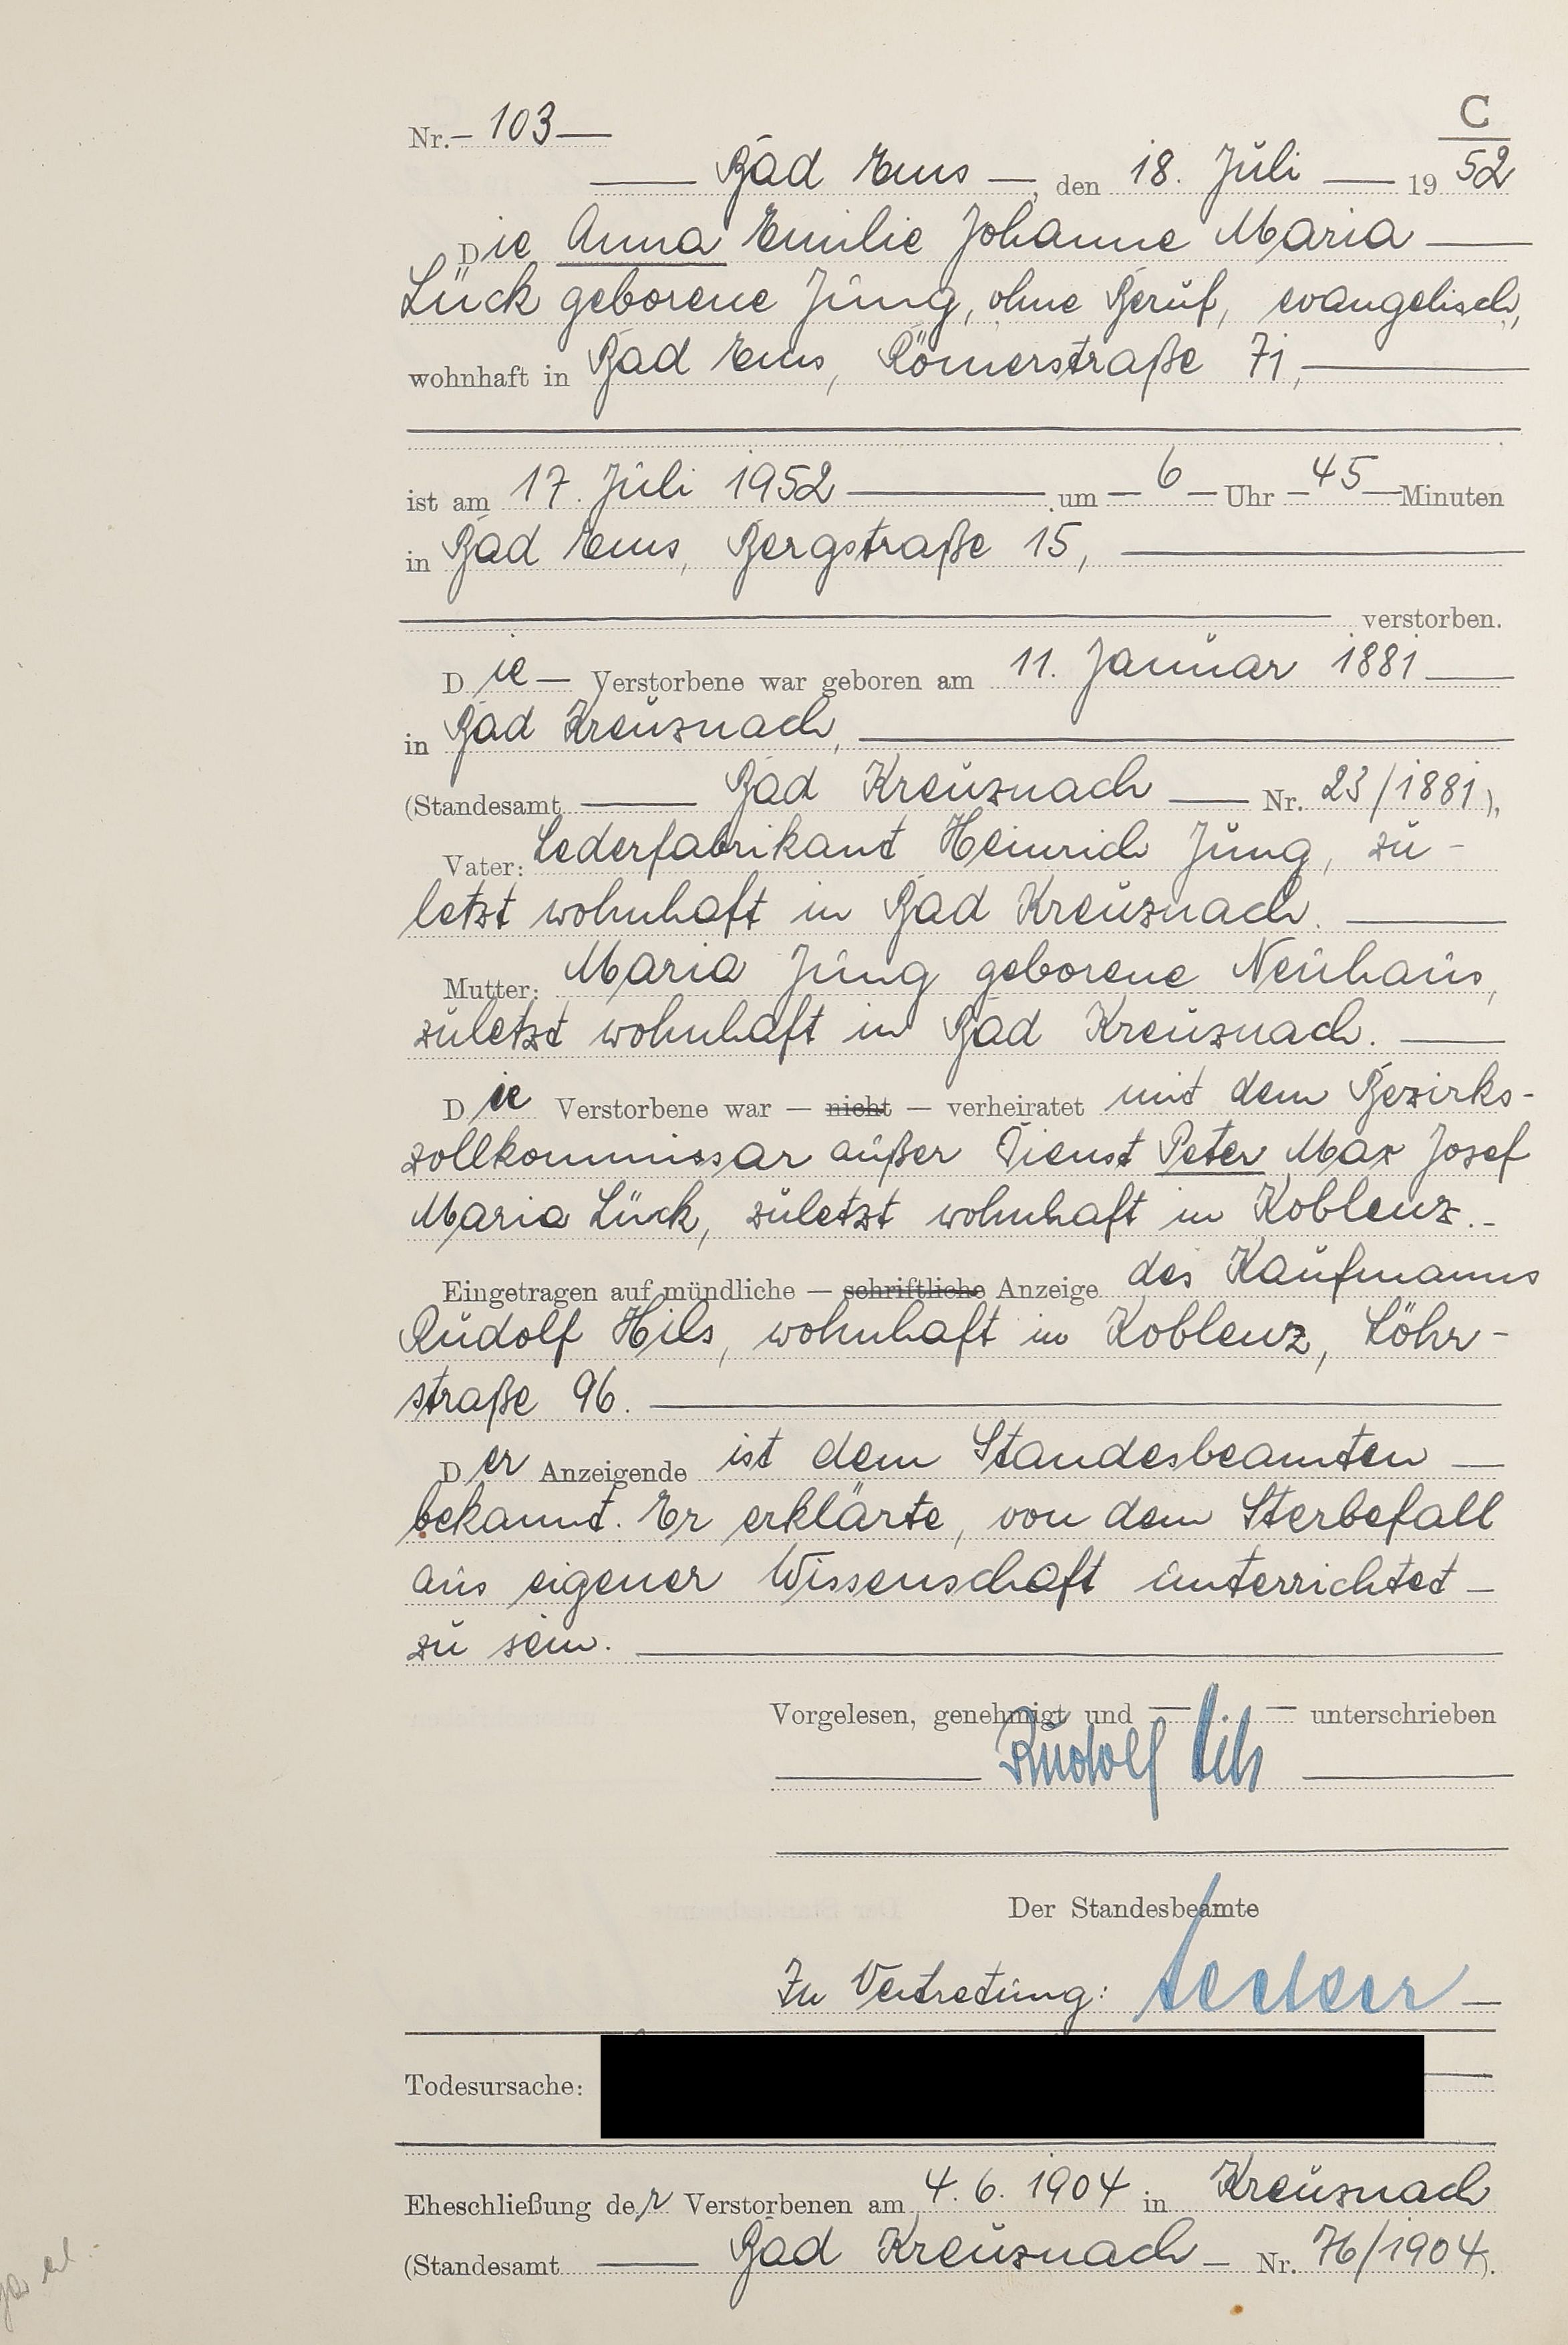 C
Nr. 103
Bad Ems, den 18. Juli 19 52
Die Anna Emilie Johanne Maria
Lück geborene Jung, ohne Beruf, evangelisch,
wohnhaft in Bad Ems, Römerstraße 71,
ist am 17. Juli 1952 um 6 Uhr 45 Minuten
in Bad Ems, Bergstraße 15,
verstorben.
Die Verstorbene war geboren am 11. Januar 1881
in Bad Kreuznach,
(Standesamt Bad Kreuznach Nr. 23/1881),
Vater: Lederfabrikant Heinrich Jung, zu-
letzt wohnhaft in Bad Kreuznach.
Mutter: Maria Jung geborene Neuhaus,
zuletzt wohnhaft in Bad Kreuznach.
Die Verstorbene war — nicht — verheiratet mit dem Bezirks-
zollkommissar außer Dienst Peter Max Josef
Maria Lück, zuletzt wohnhaft in Koblenz.
Eingetragen auf mündliche — schriftliche Anzeige des Kaufmanns
Rudolf Hils, wohnhaft in Koblenz, Löhr-
straße 96.
Der Anzeigende ist dem Standesbeamten
bekannt. Er erklärte, von dem Sterbefall
aus eigener Wissenschaft unterrichtet
zu sein.
Vorgelesen, genehmigt und unterschrieben
Rudolf Hils
Der Standesbeamte
In Vertretung:
Todesursache:
Eheschließung der Verstorbenen am 4.6.1904 in Kreuznach
(Standesamt Bad Kreuznach Nr. 76/1904).